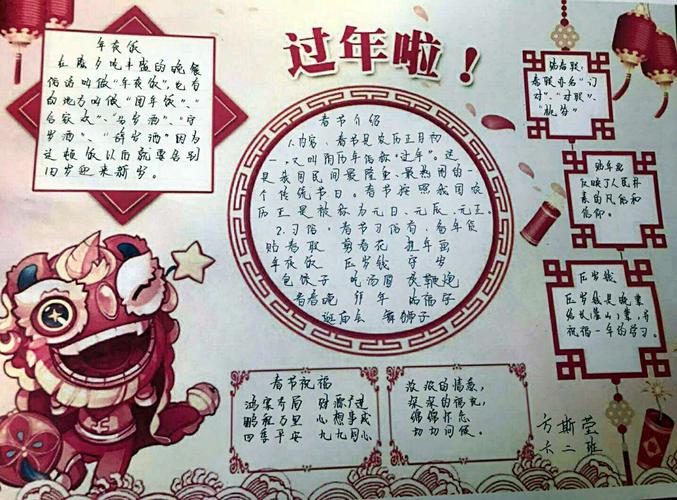 过年啦！
年夜饭
在除夕吃丰盛的晚餐
俗话叫做"年夜饭",也有
的地方叫做"团年饭"、
合家欢"、"分岁酒"、"守
岁酒"、"辞岁酒"因为
这顿饭以后就要告别
旧岁迎来新岁。
春节介绍
1.内容,春节是农历正月初
一,又叫阴历年俗称"过年"。这
是我国民间最隆重、最热闹的一
个传统节日。春节按照我国农
历正是被称为元日、元辰、元正。
2.习俗,春节习俗有,备年货
贴春联 剪春花 挂年画
年夜饭 压岁钱 守岁
包饺子 吃汤圆 放鞭炮
看春晚 拜年 贴福字
逛庙会 舞狮子
贴春联,
春联亦名"门
对"、"对联"、
"桃符"
贴年画
反映了人民朴
素的风俗和
信仰。
压岁钱是晚辈
祝福一年的学习。
春节祝福
鸿案齐局 财源广进
鹏程万里 心想事成
四季平安 九九同心
浓浓的情意,
深深的祝礼,
绵绵怀念
切切问候。
方斯莹
六二班